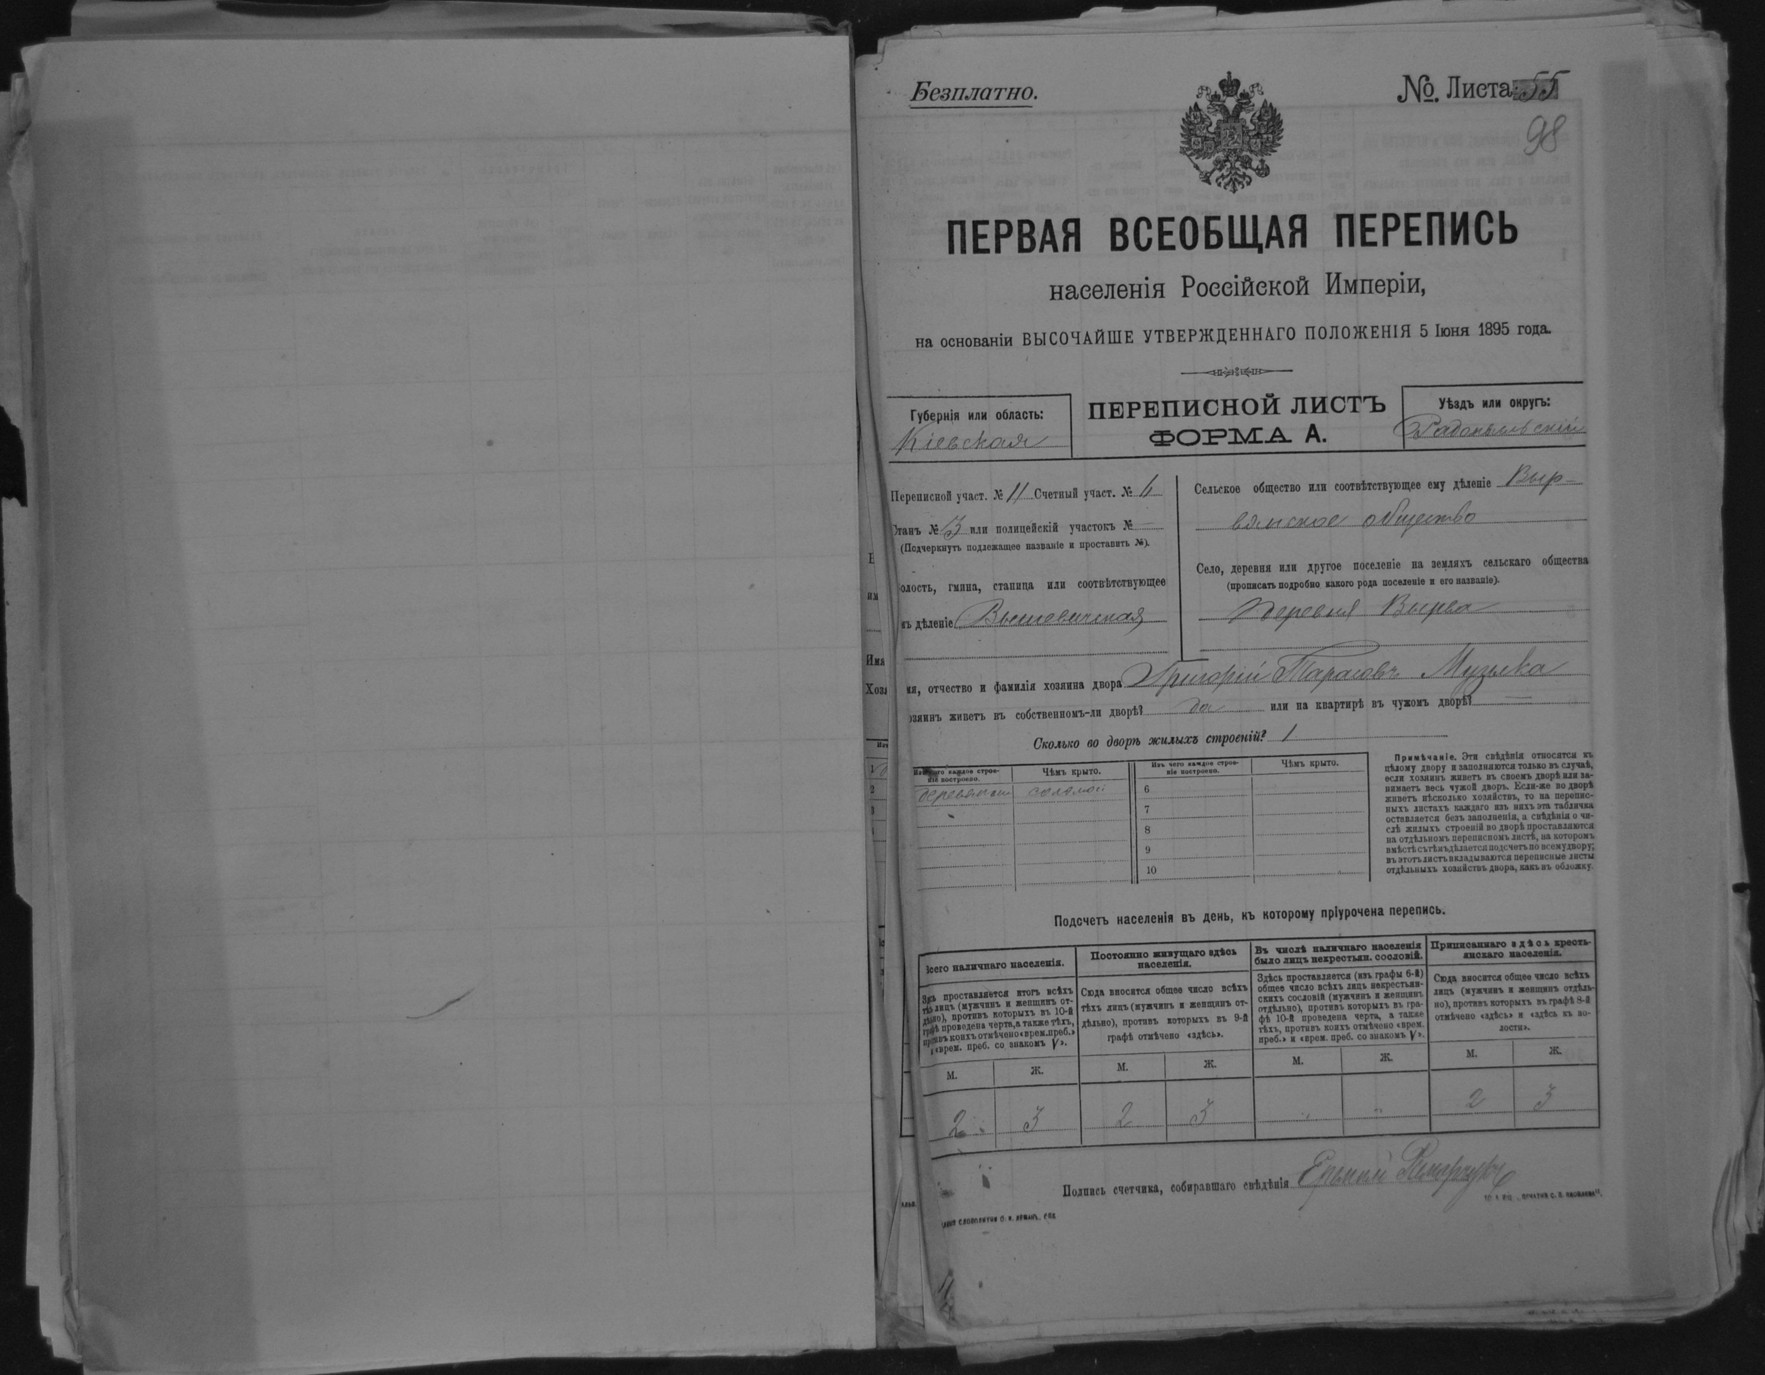 Безплатно.
№. Листа 55
98
ПЕРВАЯ ВСЕОБЩАЯ ПЕРЕПИСЬ
населенія Россійской Имперіи,
на основаніи ВЫСОЧАЙШЕ УТВЕРЖДЕННАГО ПОЛОЖЕНІЯ 5 Іюня 1895 года.
Губернія или область:
Кіевская
ПЕРЕПИСНОЙ ЛИСТЪ
ФОРМА А.
Уѣздъ или округъ:
Радомысльскій
Переписной участ. № 11 Счетный участ. №
Станъ № 3 или полицейскій участокъ № —
(Подчеркнуть подлежащее названіе и проставить №).
олость, гмина, станица или соотвѣтствующее
ъ дѣленіе Вышевичская
Сельское общество или соотвѣтствующее ему дѣленіе Выр-
вянское общество
Село, деревня или другое поселеніе на земляхъ сельскаго общества
(прописать подробно какого рода поселеніе и его названіе).
Деревня Вырва
Има
Хозя
ия, отчество и фамилія хозяина двора Григорій Тарасовъ Музыка
озяинъ живетъ въ собственномъ-ли дворѣ? да или на квартирѣ въ чужомъ дворѣ? —
Сколько во дворѣ жилыхъ строеній? 1
Изъ чего каждое строе-
ніе построено.
Чѣмъ крыто.
Изъ чего каждое строе-
ніе построено.
Чѣмъ крыто.
соломой
6
7
8
9
10
Примѣчаніе. Эти свѣдѣнія относятся къ
цѣлому двору и заполняются только въ случаѣ,
если хозяинъ живетъ въ своемъ дворѣ или за-
нимаетъ весь чужой дворъ. Если-же во дворѣ
живетъ нѣсколько хозяйствъ, то на перепис-
ныхъ листахъ каждаго изъ нихъ эта табличка
оставляется безъ заполненія, а свѣдѣнія о чи-
слѣ жилыхъ строеній во дворѣ проставляются
на отдѣльномъ переписномъ листѣ, на которомъ
вмѣстѣ съ тѣмъ дѣлается подсчетъ по всему двору;
въ этотъ листъ вкладываются переписные листы
отдѣльныхъ хозяйствъ двора, какъ въ обложку.
Подсчетъ населенія въ день, къ которому пріурочена перепись.
Всего наличнаго населенія.
Здѣсь проставляется итогъ всѣхъ
тѣхъ лицъ (мужчинъ и женщинъ от-
дѣльно), противъ которыхъ въ 10-й
графѣ проведена черта, а также тѣхъ,
противъ коихъ отмѣчено «врем. преб.»
и «врем. преб. со знакомъ V».
М. Ж.
2 3
Постоянно живущаго здѣсь
населенія.
Сюда вносится общее число всѣхъ
тѣхъ лицъ (мужчинъ и женщинъ от-
дѣльно), противъ которыхъ въ 9-й
графѣ отмѣчено «здѣсь».
М. Ж.
2 3
Въ числѣ наличнаго населенія
было лицъ некрестьян. сословій.
Здѣсь проставляется (изъ графы 6-й)
общее число всѣхъ лицъ некрестьян-
скихъ сословій (мужчинъ и женщинъ
отдѣльно), противъ которыхъ въ гра-
фѣ 10-й проведена черта, а также
тѣхъ, противъ коихъ отмѣчено «врем.
преб.» и «врем. преб. со знакомъ V».
М. Ж.
" "
Приписаннаго здѣсь кресть-
янскаго населенія.
Сюда вносится общее число всѣхъ
лицъ (мужчинъ и женщинъ отдѣль-
но), противъ которыхъ въ графѣ 8-й
отмѣчено «здѣсь» и «здѣсь въ во-
лости».
М. Ж.
2 3
Подпись счетчика, собиравшаго свѣдѣнія